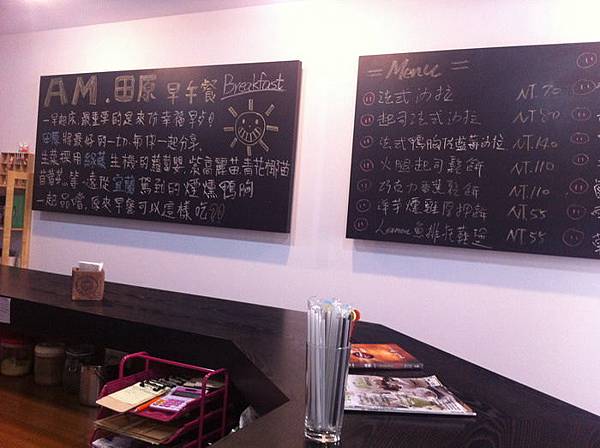 AM.田原 早午餐 Breakfast
一早起床,最重要的是來份幸福早午
田原將最好的一切,和你一起分享.
生菜採用 生機的蘿蔓嬰.紫高麗苗.青花椰苗
苜蓿芽.等.遠從宜蘭駕到的煙燻鴨胸
一起品嚐,原來早餐可以這樣吃
= Menu =
法式沙拉 NT.70
起司法式沙拉 NT.80
法式鴨胸 莓沙拉 NT.140
火腿起司鬆餅 NT.110
巧克力香蕉鬆餅 NT.110
洋芋燻雞厚押餅 NT.55
Lemon魚排 NT.55